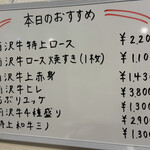 本日のおすすめ
沢牛特上ロース ¥2,20
沢牛ロース焼すき(1枚) ¥1,10
沢牛上赤身 ¥1,430
沢牛ヒレ ¥3,800
ボリュッケ ¥1,300
沢牛4種盛り ¥2,90
特上和牛ミノ ¥1,300